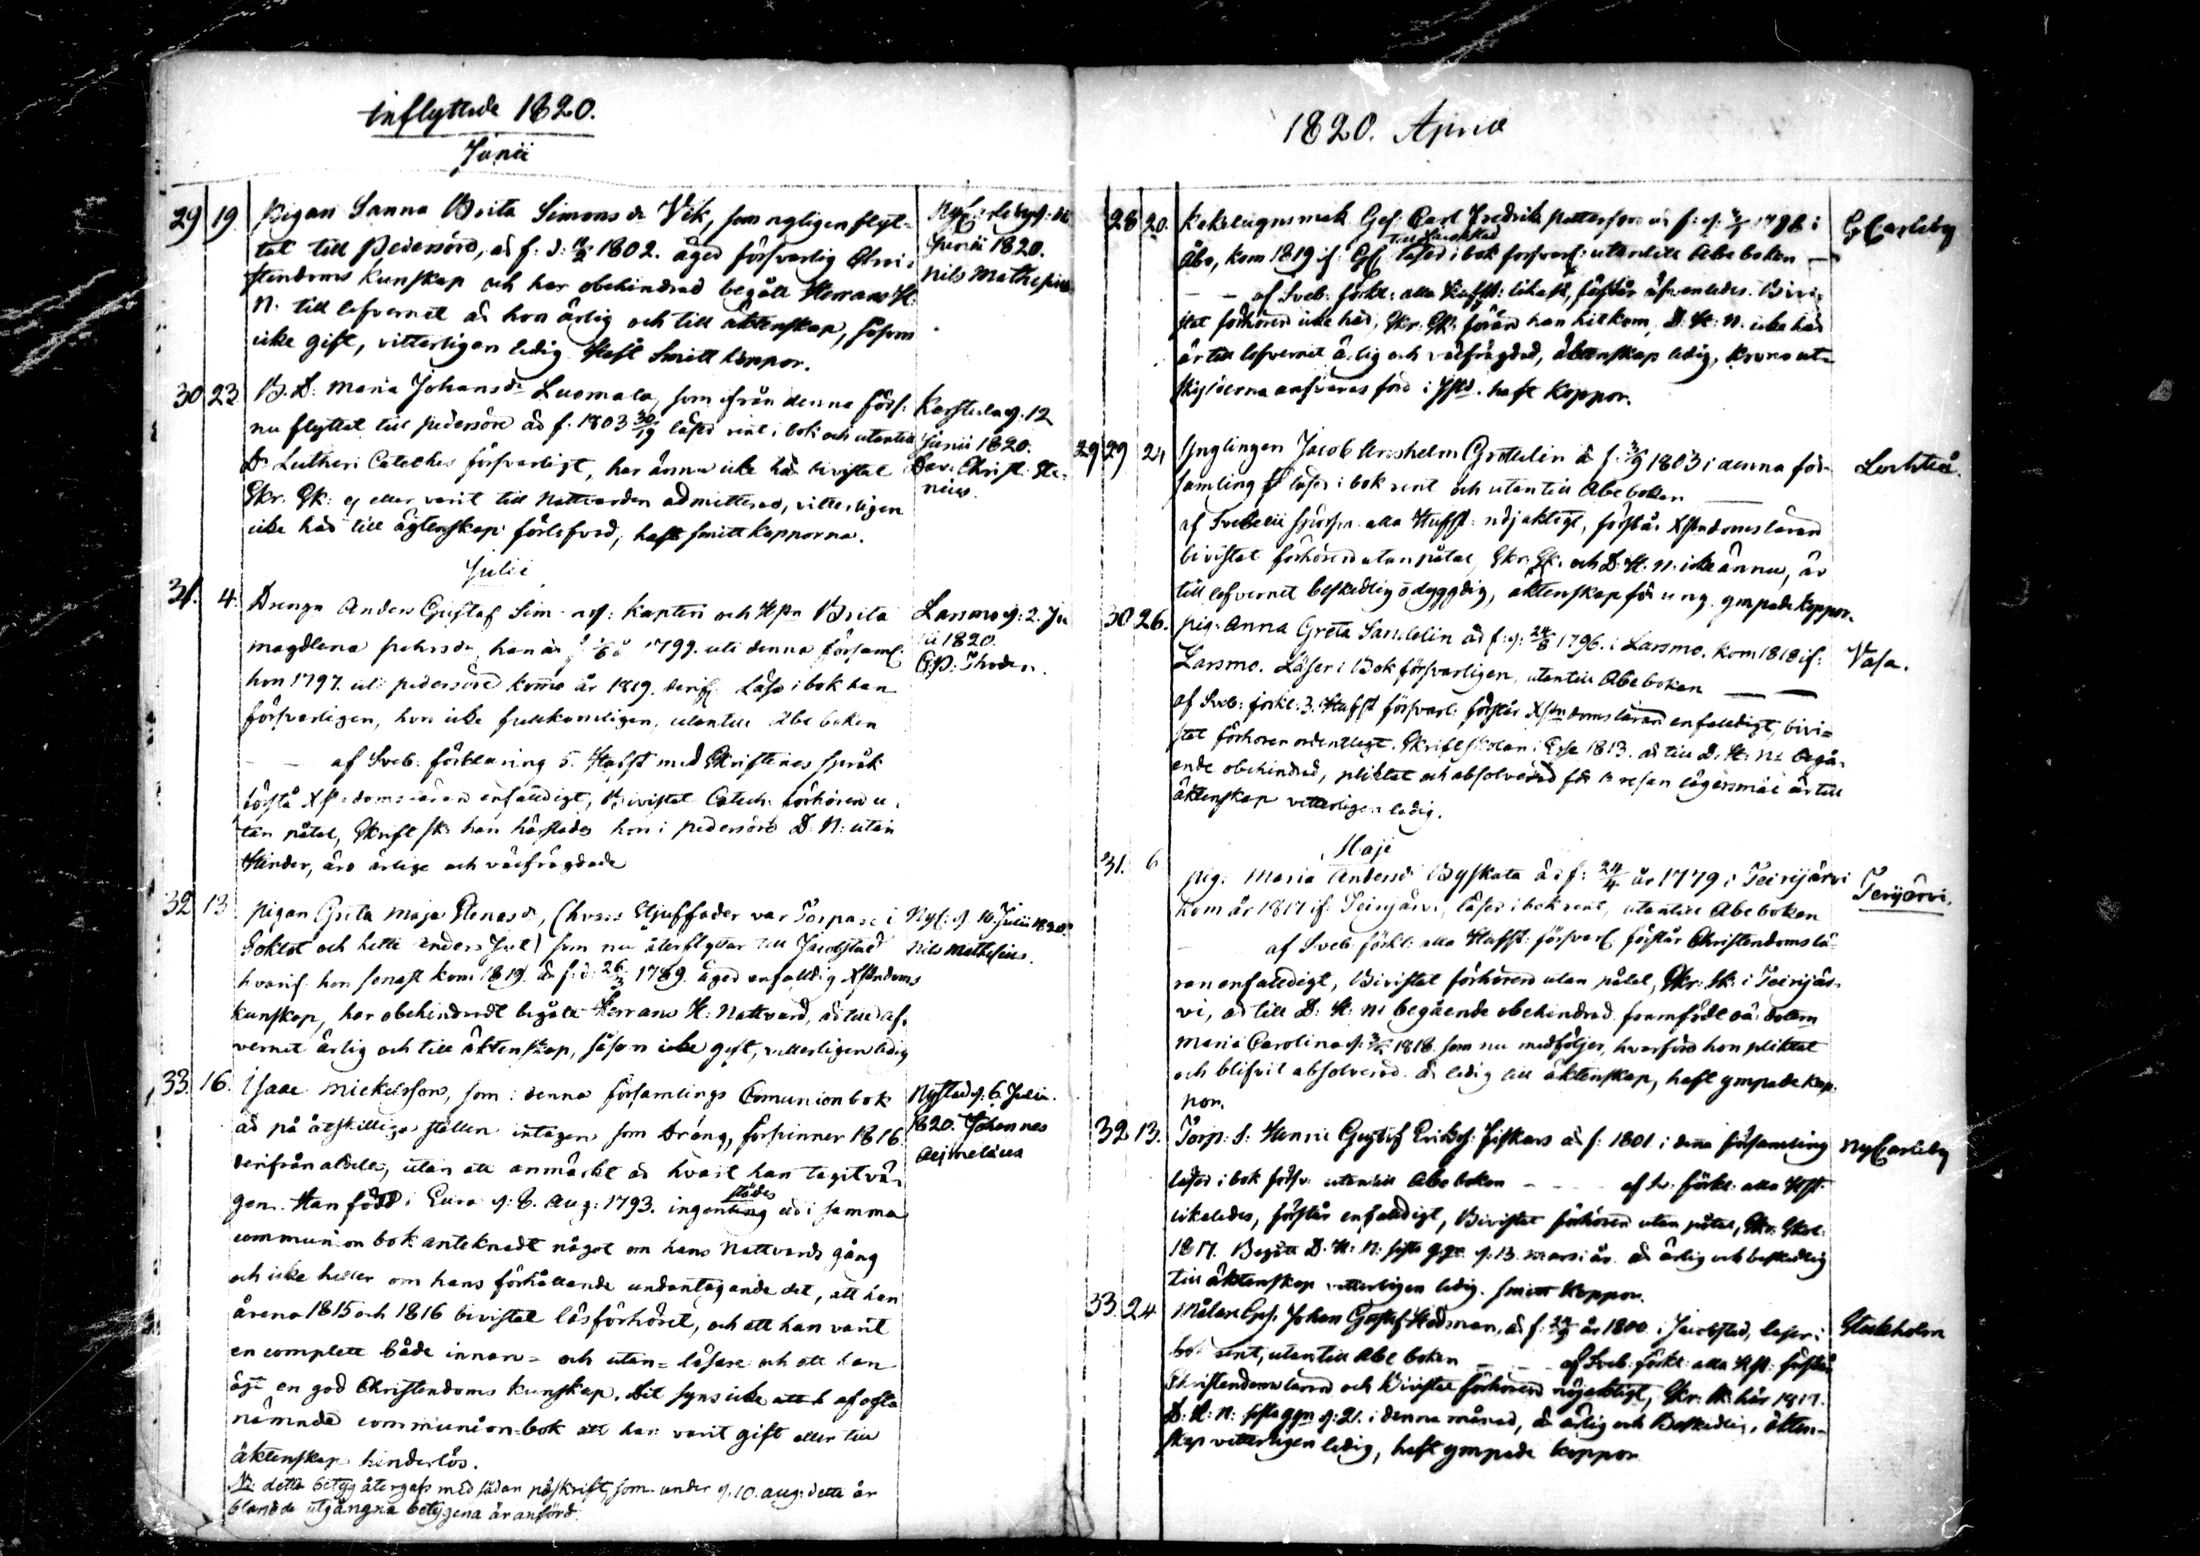 Inflyttade 1820.
Junii
29 19. Pigan Sanna Brita Simonsdr Vik, som nyligen flyt-
tat till Pedersöre, är f. d. 1802. äger försvarlig Chri-
stendoms kunskap och har obehindrad begått Herrans H:
N: till lefvernet är hon ärlig och till äktenskap, såsom
icke gift, vitterligen ledig. Haft Smittkoppor.
NyCarleby d:
Junii 1820.
Nils Mathesius
30 23 B. D: Maria Johansdr Luomala, som ifrån denna förs:
nu flyttat till pedersöre är f. 1803 30/19 läser rent i bok och utantill
Dr Lutheri Cateches försvarligt, har ännu icke här bivistat
Skr. Sk: ej eller varit till Nattvarden admitterad, vitterligen
icke här till ägtenskap förlofvad, haft smittkopporna.
Karstula d. 12
Junii 1820.
Dav. Christ. Ste-
nius.
Julii
31. 4. Drengn Anders Gustaf Sim. Kapten och Hstn Brita
magdlena pehrsdr, han är 1799. uti denna församl:
hon 1797. uti pedersöre komo år 1819. derif: Läsa i bok han
försvarligen, hon icke fullkomligen, utantill Abc boken
– – af Sveb: förklaring 5. Hufst med Skriftenes språk
förstå Xstndomsläran enfaldigt, Bivistat Catech: förhören u-
tan påtal, Skrift sk: han härstädes hon i pedersöre D. N: utan
Hinder, äro ärlige och välfrägdade
Larsmo d: 2. Ju
lii 1820.
G. P. Thodén.
32 13 Pigan Greta Maja Stensdr, (hvars Stjuffader var Torpare i
Soklot och hette Anders Jut) som nu återflyttar till Jacobstad
hvarif. hon senast kom 1819 är f. d. 26/3 1789. äger enfaldig Xstndoms
kunskap, har obehindradt begått Herrans H: Nattvard, är till lef-
vernet ärlig och till äktenskap, såsom icke gift, vitterligen ledig
NyC: d. 10 Julii 1820.
Nils Mathesius.
33. 16. Isaac Mickelsson, som i denna församlings Comunionbok
är på åtskilliga ställen intagen som dräng, försvinner 1816.
derifrån alldeles, utan att anmärkt är hvart han tagit vä-
gen. Han född i Eura d: 8. Aug: 1793. ingenting städes uti samma
communion bok anteknadt något om hans Nattvards gång
och icke heller om hans förhållande undantagande det, att han
årena 1815 och 1816 bivistat läsförhöret, och att han varit
en complett både innan- och utan- läsare och att han
ägt en god Christendoms kunskap. Det syns icke att h af ofta
nämnde communion-bok att han varit gift eller till
äktenskap hinderlös.
NB: detta betyg återgafs med sådan påskrift, som under d. 10. aug: detta år
bland de utgångna betygena är anförd.
Nystad d: 6. Julii.
1820. Johannes
Aejmelæus
1820. April
28 20. Kakelugnsmak. Ges: Carl Fredrik Pettersson är f: d. 1798 i
Åbo, kom 1819 if: till Jacobstad läser i bok försvarl: utantill Abc boken –
– – af Sveb: förkl: alla Hufst: likaså, förstår äfvenledes. Bivi-
stat förhören icke här, Skr: Sk: förän han hitkom, D: H: N: icke här
är till lefvernet ärlig och välfrägdad, äktenskap ledig, Kronout-
skylderna ansvaras före i Jstd. haft Koppor.
G Carleby
29 29 24 Ynglingen Jacob Anshelm Gretelin är f. 1803 i denna för-
samling läser i bok rent och utantill Abc boken
af Svebelii spörsm. alla Hufst: nöjaktigt, förstår Xstndomsläran
bivistat förhören utan påtal, Skr: Sk. och D: H: N: icke ännu, är
till lefvernet beskedlig o dygdig, äktenskap för ung. ympade koppor.
Lochteå.
30 26. pig: Anna Greta Sandelin är f: d: 24/8 1796. i Larsmo. kom 1818 if:
Larsmo. Läser i Bok försvarligen, utantill Abc boken
af Sveb: förkl: 3. Hufst försvarl. förstår Xstndomsläran enfaldigt, bivi-
stat förhören ordentligt. Skriftskolan i 1813. är till D. H: N: begå-
ende obehindrad, pliktat och absolverad för 1a resan lägersmål är till
äktenskap vitterligen ledig.
Vasa.
Maji
31. 6 pig: Maria Andersdr Byskata är f: 24/4 år 1779 i Teirijärvi
kom år 1817 if. Teirijärvi, läser i bok rent, utantill Abc boken
– af Sveb: förkl: alla Hufst: försvarl förstår Christendomslä-
ran enfaldigt, Bivistat förhören utan påtal, Skr: Sk: i Teirijär-
vi, är till D: H: N: begående obehindrad. framfödt oä: dottern
Maria Carolina d. 1818. som nu medföljer, hvarföre hon pliktat
och blifvit absolverad. är ledig till äktenskap, haft ympade kop-
por.
Terijärvi.
32 13. Torp: s: Henric Gustaf Erikss: Fiskars är f: 1801. i denna församling
läser i bok försv: utantill Abc boken – – – – af Sv: förkl: alla Hfst:
likaledes, förstår enfaldigt, Bivistat förhören utan påtal, Skr: Skol:
1817. Begått D: H: N: sista ggn d. 13. Mars i år. är ärlig och beskedlig
till äktenskap vitterligen ledig. smitt Koppor.
NyCarleby
33. 24 Målare Ges. Johan Gustaf Hedman, är f: år 1800. i Jacobstad, läser i
bok rent, utantill Abc boken – – af Sveb: förkl: alla Hfst: förstår
Christendomsläran och bivistat förhören nöjaktigt, Skr: Sk: här 1817.
D: H: N: sista ggn d: 21. i denna månad, är ärlig och Beskedlig, äkten-
skap vitterligen ledig, haft ympade koppor
Stockholm